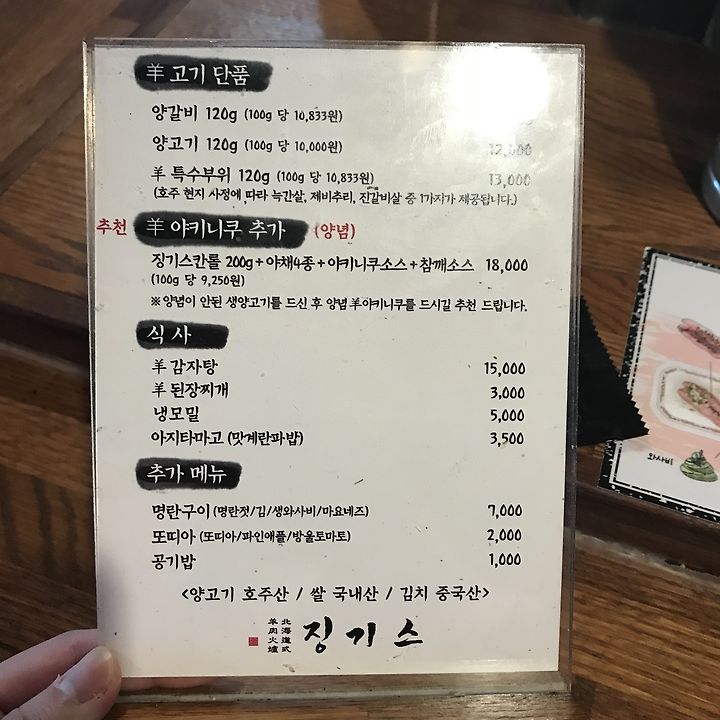 羊 고기 단품
양갈비 120g (100g 당 10,833원)
양고기 120g (100g 당 10,000원) 12,000
羊 특수부위 120g (100g 당 10,833원) 13,000
(호주 현지 사정에 따라 늑간살, 제비추리, 진갈비살 중 1가지가 제공됩니다.)
추천 羊 야키니쿠 추가 (양념)
징기스칸롤 200g + 야채4종 + 야키니쿠소스 + 참깨소스 18,000
(100g 당 9,250원)
※ 양념이 안된 생양고기를 드신 후 양념 羊야키니쿠를 드시길 추천 드립니다.
식사
羊 감자탕 15,000
羊 된장찌개 3,000
냉모밀 5,000
아지타마고 (맛계란파밥) 3,500
추가 메뉴
명란구이 (명란젓/김/생와사비/마요네즈) 7,000
또띠아 (또띠아/파인애플/방울토마토) 2,000
공기밥 1,000
<양고기 호주산 / 쌀 국내산 / 김치 중국산>
北海道式
羊肉火爐
징기스
와사비